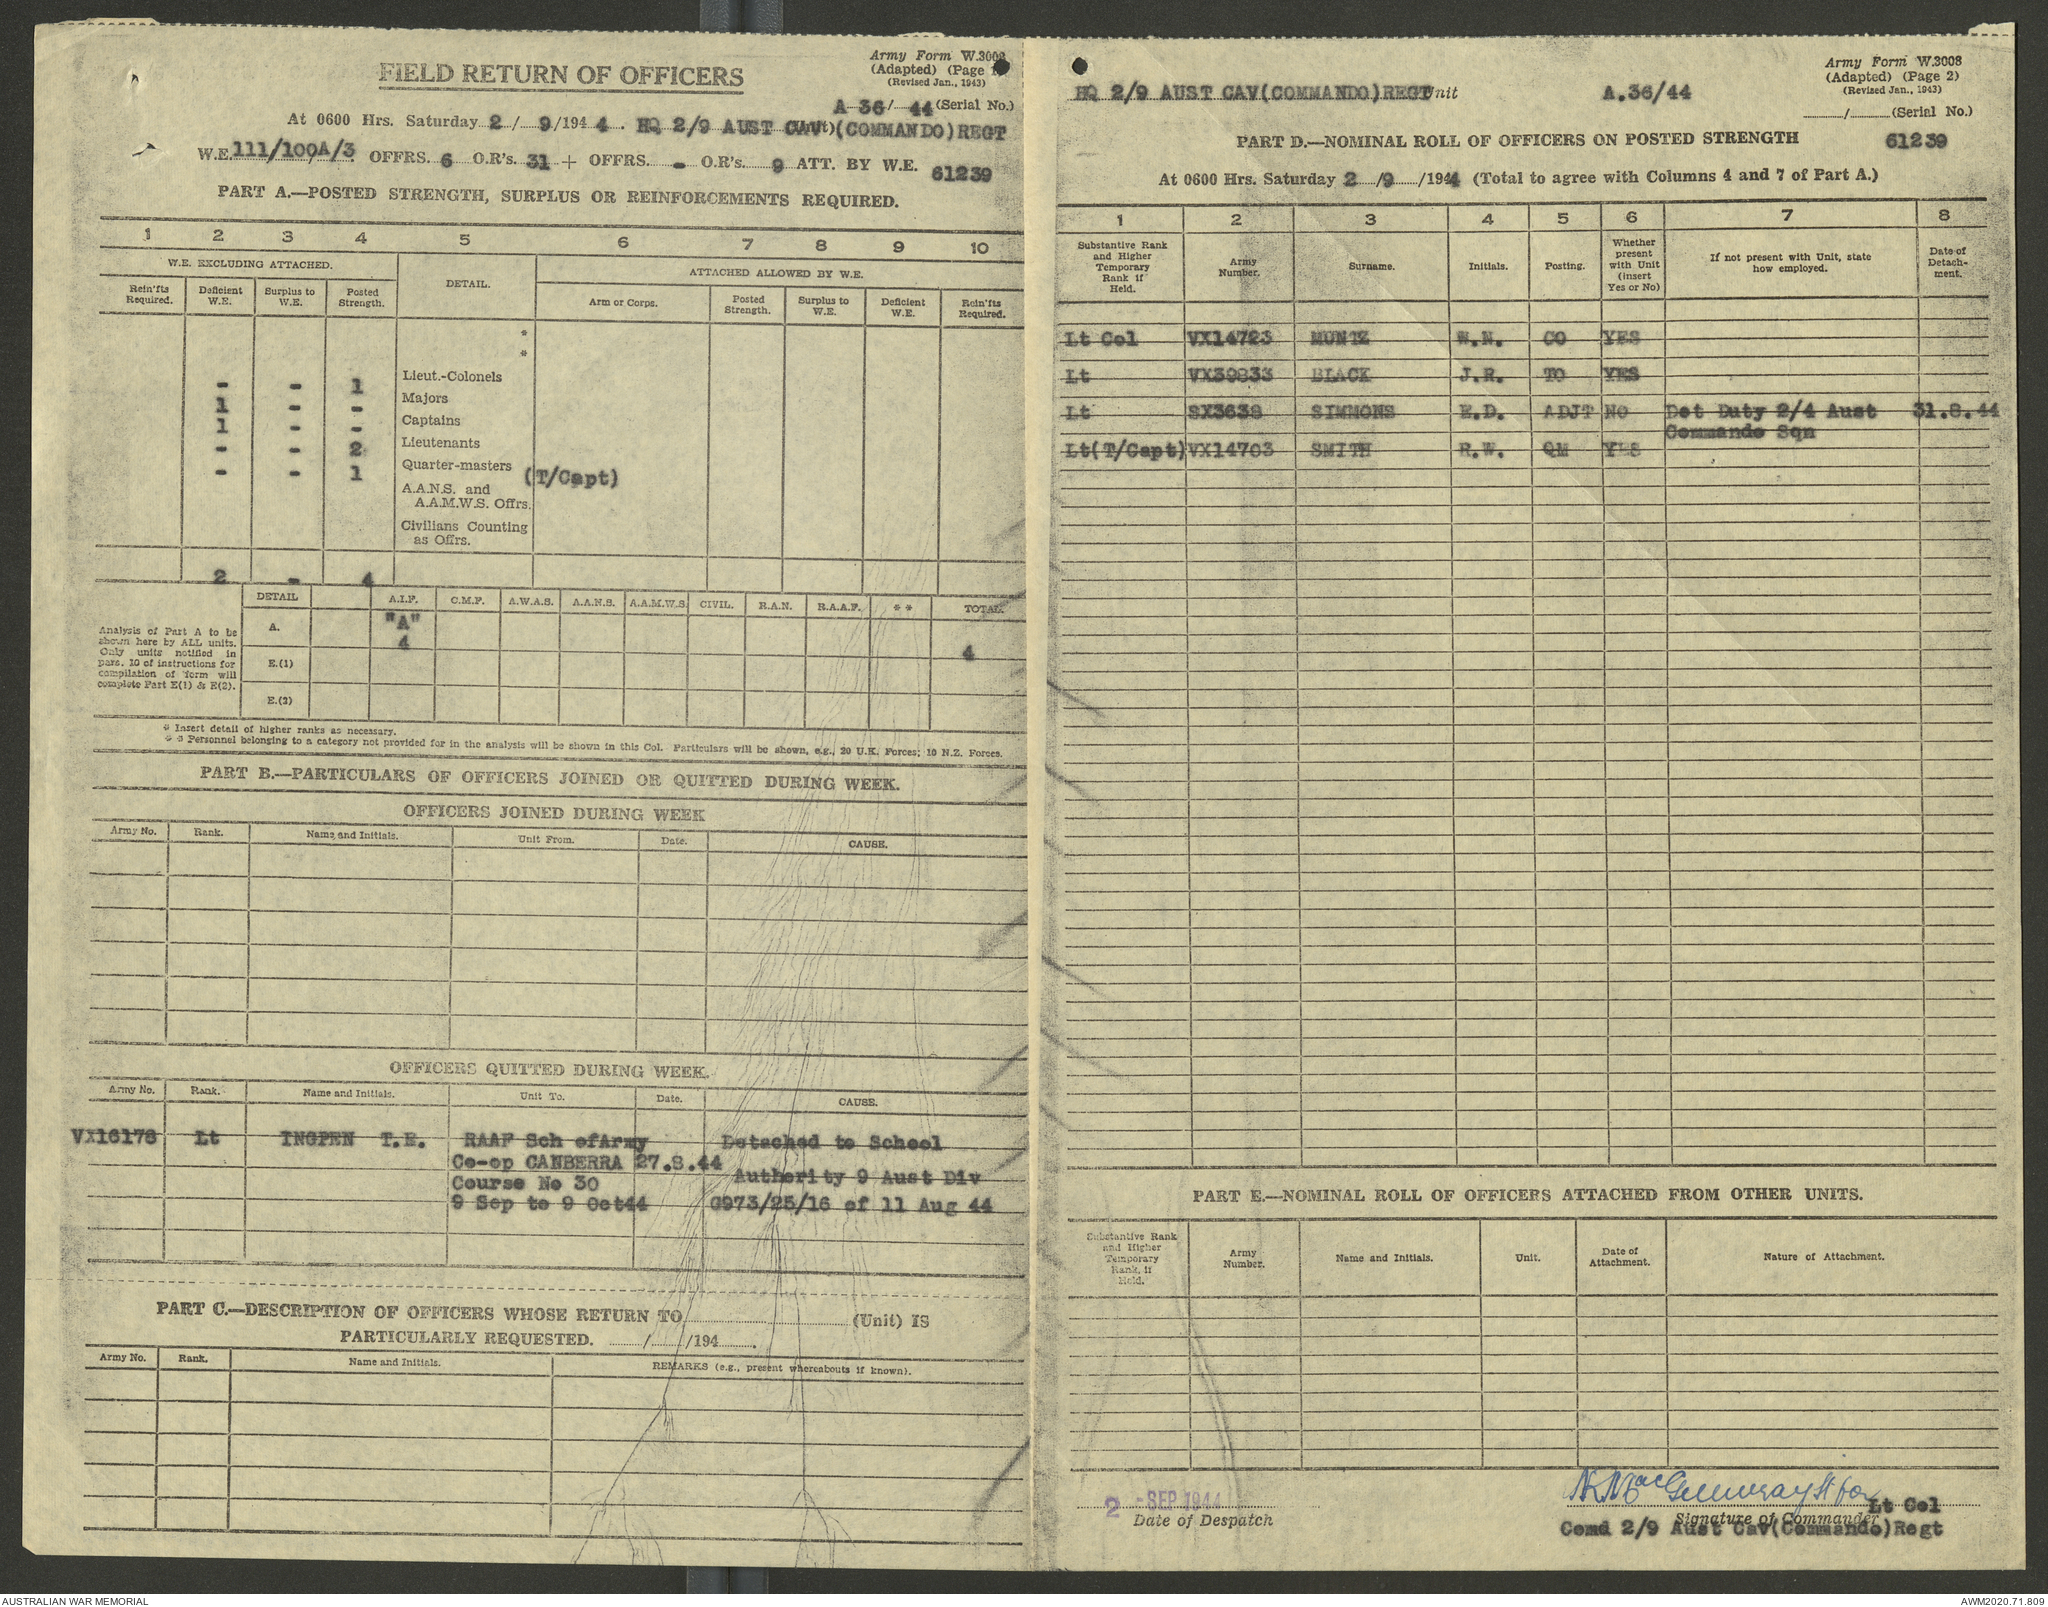 Army Form W.3008
(Adapted) (Page 1)
(Revised Jan., 1943)
FIELD RETURN OF OFFICERS
A 36/ 44 (Serial No.)
At 0600 Hrs. Saturday 2 / 9/194 4. HQ 2/9 AUST CAV (COMMANDO) REGT
W.E. 111/100A/3 OFFRS. 6 O.R's. 31 + OFFRS. - O.R's. 9 ATT. BY W.E. 61239
PART A.—POSTED STRENGTH, SURPLUS OR REINFORCEMENTS REQUIRED.
1 2 3 4 5 6 7 8 9 10
W.E. EXCLUDING ATTACHED. DETAIL. ATTACHED ALLOWED BY W.E.
Rein'fts Required. Deficient W.E. Surplus to W.E. Posted Strength. Arm or Corps. Posted Strength. Surplus to W.E. Deficient W.E. Rein'fts Required.
*
*
- - 1 Lieut.-Colonels
1 - - Majors
1 - - Captains
- - 2 Lieutenants
- - 1 Quarter-masters (T/Capt)
A.A.N.S. and
A.A.M.W.S. Offrs.
Civilians Counting
as Offrs.
2 - 4
DETAIL A.I.F. C.M.F. A.W.A.S. A.A.N.S. A.A.M.W.S. CIVIL. R.A.N. R.A.A.F. ** TOTAL.
Analysis of Part A to be
shown here by ALL units.
Only units notified in
para. 10 of instructions for
compilation of form will
complete Part E(1) & E(2).
A. "A"
4 4
E.(1)
E.(2)
* Insert detail of higher ranks as necessary.
* * Personnel belonging to a category not provided for in the analysis will be shown in this Col. Particulars will be shown, e.g., 20 U.K. Forces; 10 N.Z. Forces.
PART B.—PARTICULARS OF OFFICERS JOINED OR QUITTED DURING WEEK.
OFFICERS JOINED DURING WEEK
Army No. Rank. Name and Initials. Unit From. Date. CAUSE.
OFFICERS QUITTED DURING WEEK.
Army No. Rank. Name and Initials. Unit To. Date. CAUSE.
VX16178 Lt INGPEN T.E. RAAF Sch ofArmy Detached to School
Co-op CANBERRA 27.8.44 Authority 9 Aust Div
Course No 30
9 Sep to 9 Oct44 G973/25/16 of 11 Aug 44
PART C.—DESCRIPTION OF OFFICERS WHOSE RETURN TO (Unit) IS
PARTICULARLY REQUESTED. / /194 .
Army No. Rank. Name and Initials. REMARKS (e.g., present whereabouts if known).
Army Form W.3008
(Adapted) (Page 2)
(Revised Jan., 1943)
HQ 2/9 AUST CAV(COMMANDO)REGT Unit A.36/44
/ (Serial No.)
PART D.—NOMINAL ROLL OF OFFICERS ON POSTED STRENGTH 61239
At 0600 Hrs. Saturday 2 /9 /1944 (Total to agree with Columns 4 and 7 of Part A.)
1 2 3 4 5 6 7 8
Substantive Rank and Higher Temporary Rank if Held. Army Number. Surname. Initials. Posting. Whether present with Unit (insert Yes or No) If not present with Unit, state how employed. Date of Detach-ment.
Lt Col VX14723 MUNTZ W.N. CO YES
Lt VX39833 BLACK J.R. TO YES
Lt SX3638 SIMMONS E.D. ADJT NO Det Duty 2/4 Aust 31.8.44
Commando Sqn
Lt(T/Capt) VX14703 SMITH R.W. QM YES
PART E.—NOMINAL ROLL OF OFFICERS ATTACHED FROM OTHER UNITS.
Substantive Rank and Higher Temporary Rank, if Held. Army Number. Name and Initials. Unit. Date of Attachment. Nature of Attachment.
2 -SEP 1944
Date of Despatch
Lt for Lt Col
Signature of Commander
Comd 2/9 Aust Cav(Commando)Regt
AUSTRALIAN WAR MEMORIAL
AWM2020.71.809